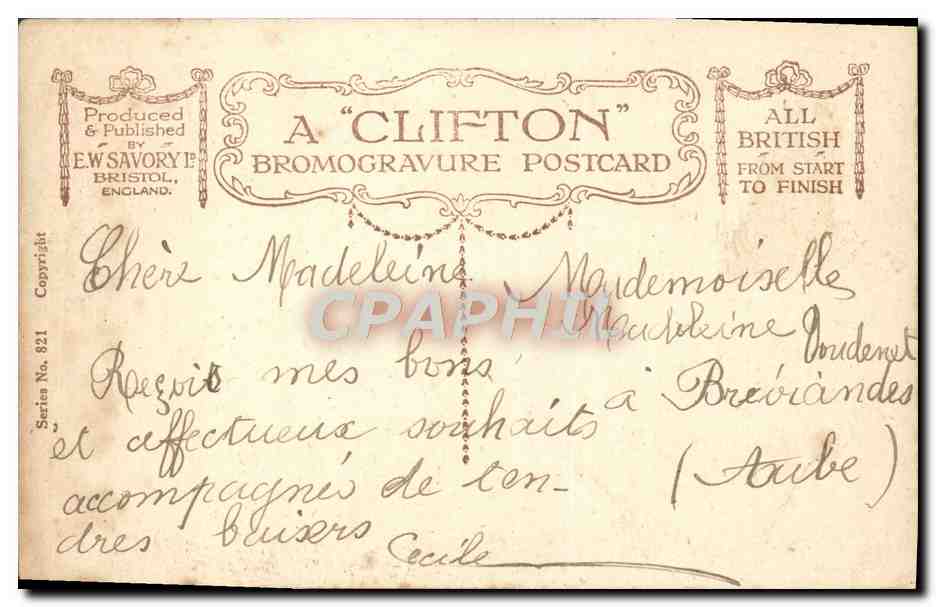 Produced
& Published
BY
E.W SAVORY Lᴰ
BRISTOL,
ENGLAND.
A "CLIFTON"
BROMOGRAVURE POSTCARD
ALL
BRITISH
FROM START
TO FINISH
Series No. 821 Copyright
Chère Madeleine
Reçois mes bons
et affectueux souhaits
accompagnés de ten-
dres baisers
Cecile
Mademoiselle
Madeleine Doudenet
à Bréviandes
(Aube)
CPAPHIL